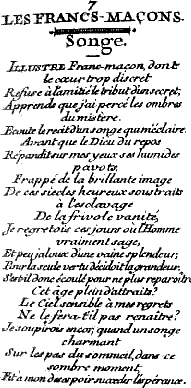 7
LES FRANCS-MAÇONS.
Songe.
ILLUSTRE Franc-maçon, dont
le cœur trop discret
Refuse à l'amitié le tribut d'un secret;
Apprends que j'ai percé les ombres
du mistere.
Ecoute le recit d'un songe qui m'éclaire.
Avant que le Dieu du repos
Répandit sur mes yeux ses humides
pavots,
Frappé de la brillante image
De ces siecles heureux soustraits
à l'esclavage
De la frivole vanité,
Je regretois ces jours où l'Homme
vraiment sage,
Et peu jaloux d'une vaine splendeur,
Pour la seule vertu décidoit la grandeur.
S'est-il donc écoulé pour ne plus reparoître
Cet âge plein d'attraits?
Le Ciel sensible à mes regrets
Ne le fera-t'il pas renaître?
Je soupirois encor, quand un songe
charmant
Sur les pas du sommeil, dans ce
sombre moment,
Et à mon desespoir succéder l'espérance.